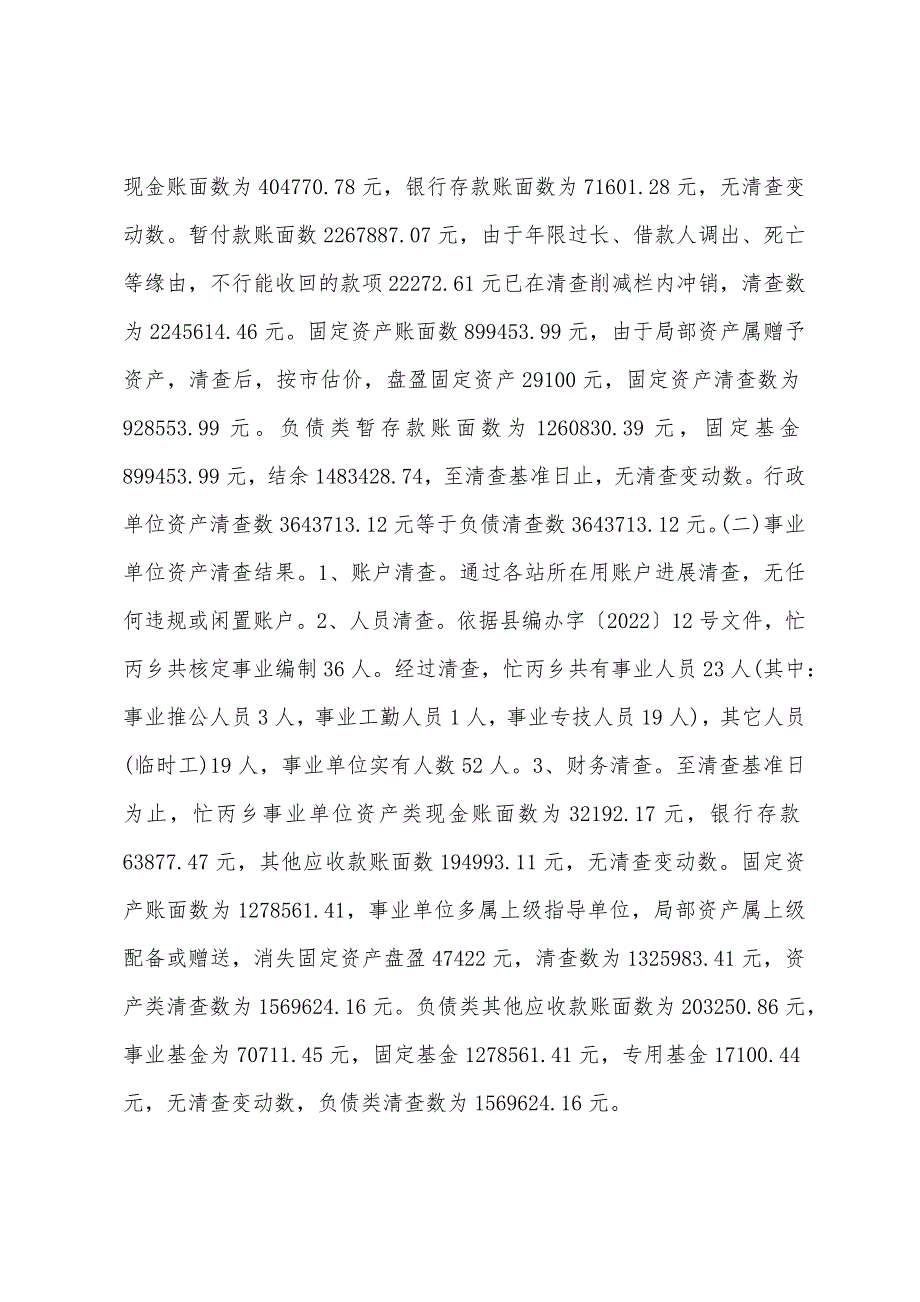 现金账面数为 404770.78 元，银行存款账面数为 71601.28 元，无清查变
动数。暂付款账面数 2267887.07 元，由于年限过长、借款人调出、死亡
等缘由，不行能收回的款项 22272.61 元已在清查削减栏内冲销，清查数
为 2245614.46 元。固定资产账面数 899453.99 元，由于局部资产属赠予
资产，清查后，按市估价，盘盈固定资产 29100 元，固定资产清查数为
928553.99 元。负债类暂存款账面数为 1260830.39 元，固定基金
899453.99 元，结余 1483428.74，至清查基准日止，无清查变动数。行政
单位资产清查数 3643713.12 元等于负债清查数 3643713.12 元。(二)事业
单位资产清查结果。1、账户清查。通过各站所在用账户进展清查，无任
何违规或闲置账户。2、人员清查。依据县编办字〔2022〕12 号文件，忙
丙乡共核定事业编制 36 人。经过清查，忙丙乡共有事业人员 23 人(其中：
事业推公人员 3 人，事业工勤人员 1 人，事业专技人员 19 人)，其它人员
(临时工)19 人，事业单位实有人数 52 人。3、财务清查。至清查基准日
为止，忙丙乡事业单位资产类现金账面数为 32192.17 元，银行存款
63877.47 元，其他应收款账面数 194993.11 元，无清查变动数。固定资
产账面数为 1278561.41，事业单位多属上级指导单位，局部资产属上级
配备或赠送，消失固定资产盘盈 47422 元，清查数为 1325983.41 元，资
产类清查数为 1569624.16 元。负债类其他应收款账面数为 203250.86 元，
事业基金为 70711.45 元，固定基金 1278561.41 元，专用基金 17100.44
元，无清查变动数，负债类清查数为 1569624.16 元。